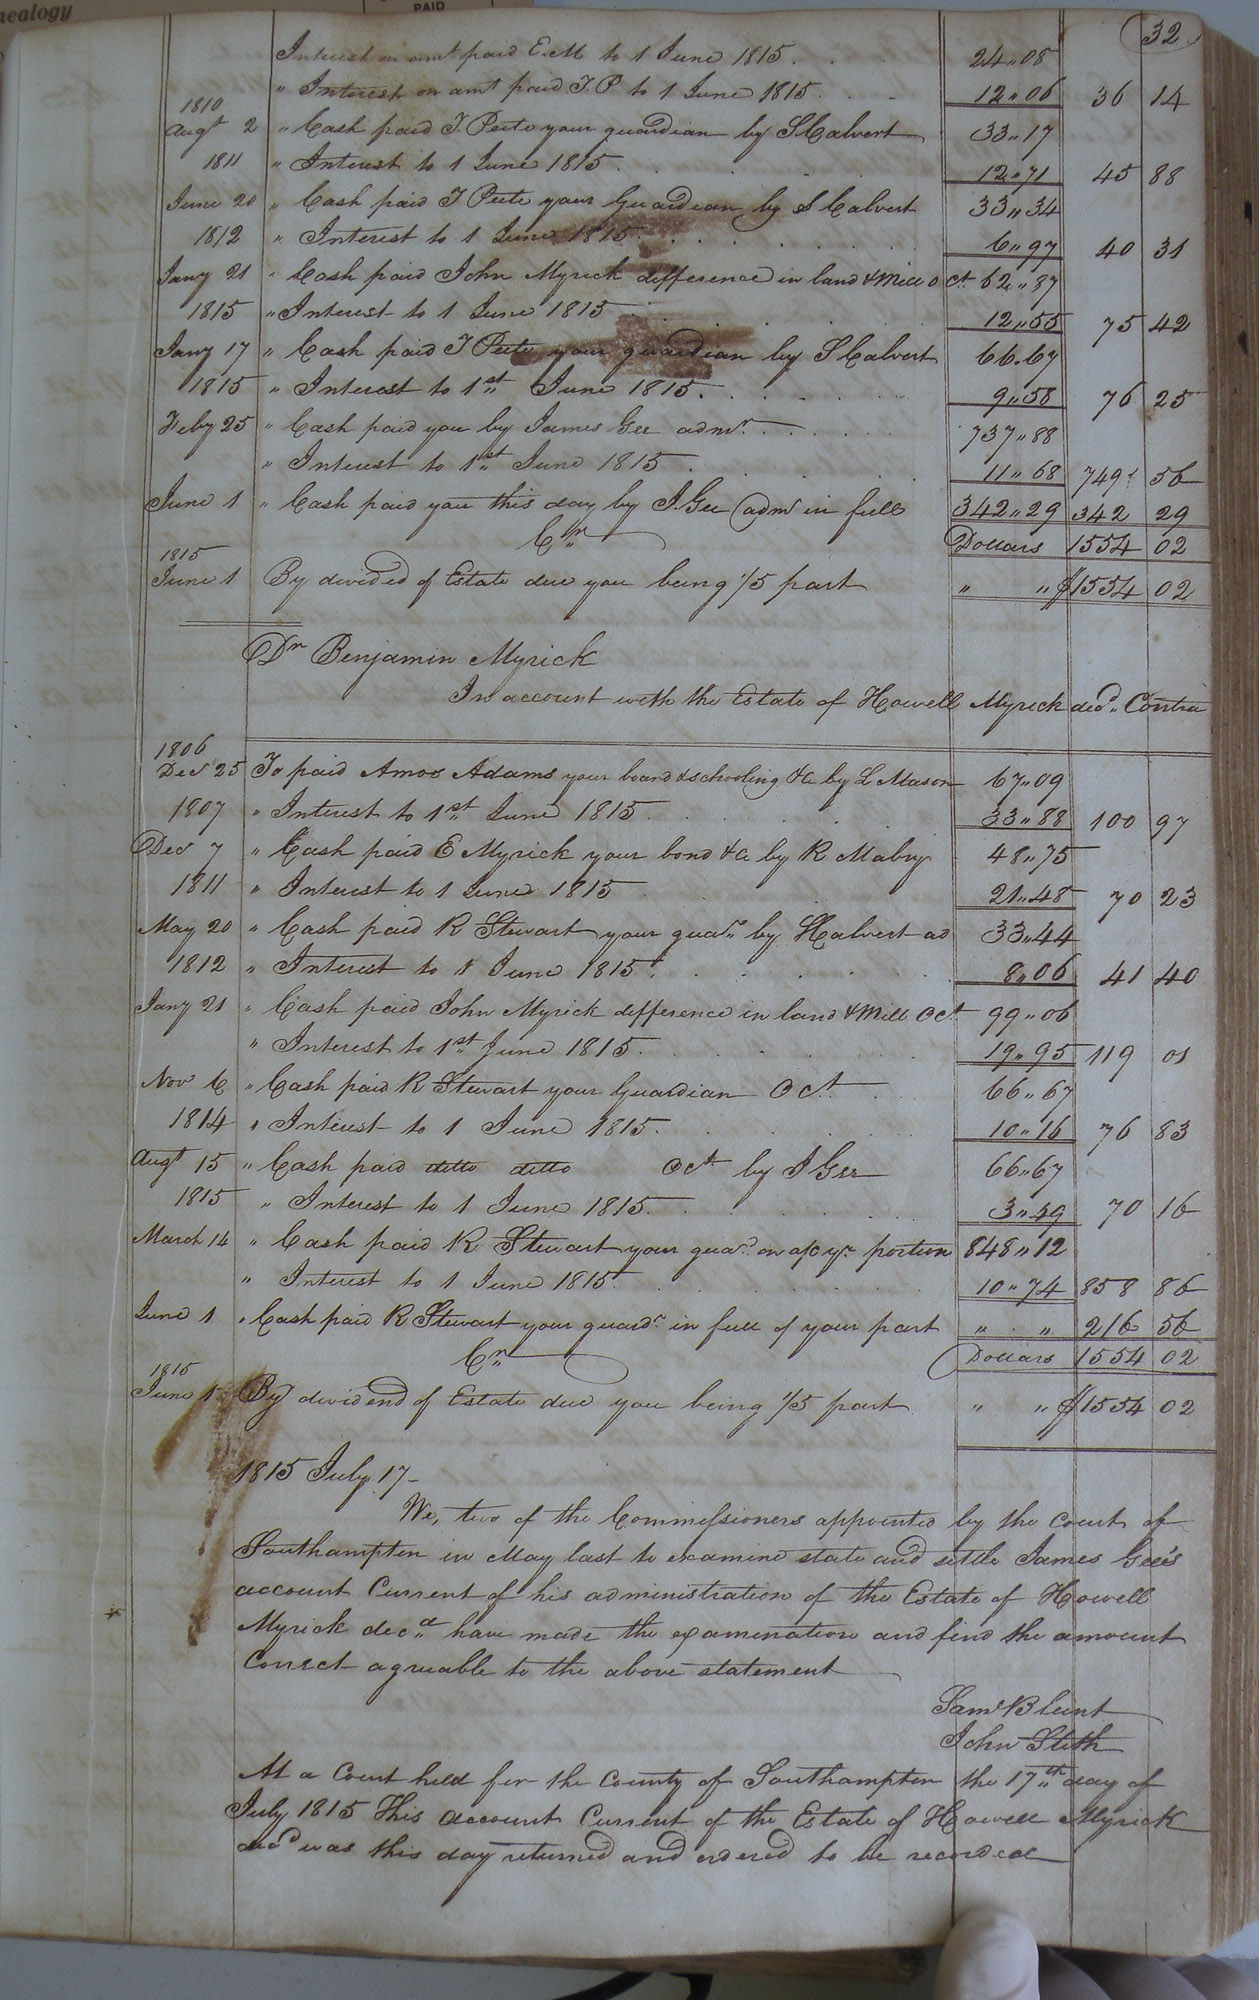 nealogy
PAID
32
Interest on amt paid E.M to 1 June 1815 24"08
" Interest on amt paid T.P to 1 June 1815 12"06 36 14
1810
Augt 2 " Cash paid T. Peete your guardian by S Calvert 33"17
1811 " Interest to 1 June 1815 12"71 45 88
June 20 " Cash paid T Peete your Guardian by S Calvert 33"34
1812 " Interest to 1 June 1815 6"97 40 31
Jany 21 " Cash paid John Myrick difference in land & Mill o Ct 62"87
1815 " Interest to 1 June 1815 12"55 75 42
Jany 17 " Cash paid T Peete your guardian by S Calvert 66"67
1815 " Interest to 1st June 1815 9"58 76 25
Feby 25 " Cash paid you by James Gee admr 737"88
" Interest to 1st June 1815 11"68 749 56
June 1 " Cash paid you this day by J. Gee admr in full 342"29 342 29
Cr Dollars 1554 02
1815
June 1 By divided of Estate due you being 1/5 part " " $1554 02
Dr Benjamin Myrick
In account with the Estate of Howell Myrick decd. Contra
1806
Decr 25 To paid Amos Adams your board & schooling &c by L Mason 67"09
1807 " Interest to 1st June 1815 33"88 100 97
Decr 7 " Cash paid E Myrick your bond &c by R Mabry 48"75
1811 " Interest to 1 June 1815 21"48 70 23
May 20 " Cash paid R Stewart your guarn by S Calvert ad 33"44
1812 " Interest to 1 June 1815 8"06 41 40
Jany 21 " Cash paid John Myrick difference in land & Mill o Ct 99"06
" Interest to 1st June 1815 19"95 119 01
Novr 6 " Cash paid R Stewart your Guardian o Ct 66"67
1814 " Interest to 1 June 1815 10"16 76 83
Augt 15 " Cash paid ditto ditto o Ct by J Gee 66"67
1815 " Interest to 1 June 1815 3"49 70 16
March 14 " Cash paid R Stewart your guarn on a/c yr portion 848"12
" Interest to 1 June 1815 10"74 858 86
June 1 " Cash paid R Stewart your guardn in full of your part " " 216 56
Cr Dollars 1554 02
1815
June 1 By dividend of Estate due you being 1/5 part " " $1554 02
1815 July 17
We, two of the Commissioners appointed by the Court of
Southampton in May last to examine state and settle James Gee's
account Current of his administration of the Estate of Howell
Myrick decd have made the examination and find the amount
Correct agreeable to the above statement
Saml Blunt
John Stith
At a Court held for the County of Southampton the 17th day of
July 1815 This account Current of the Estate of Howell Myrick
decd was this day returned and ordered to be recorded